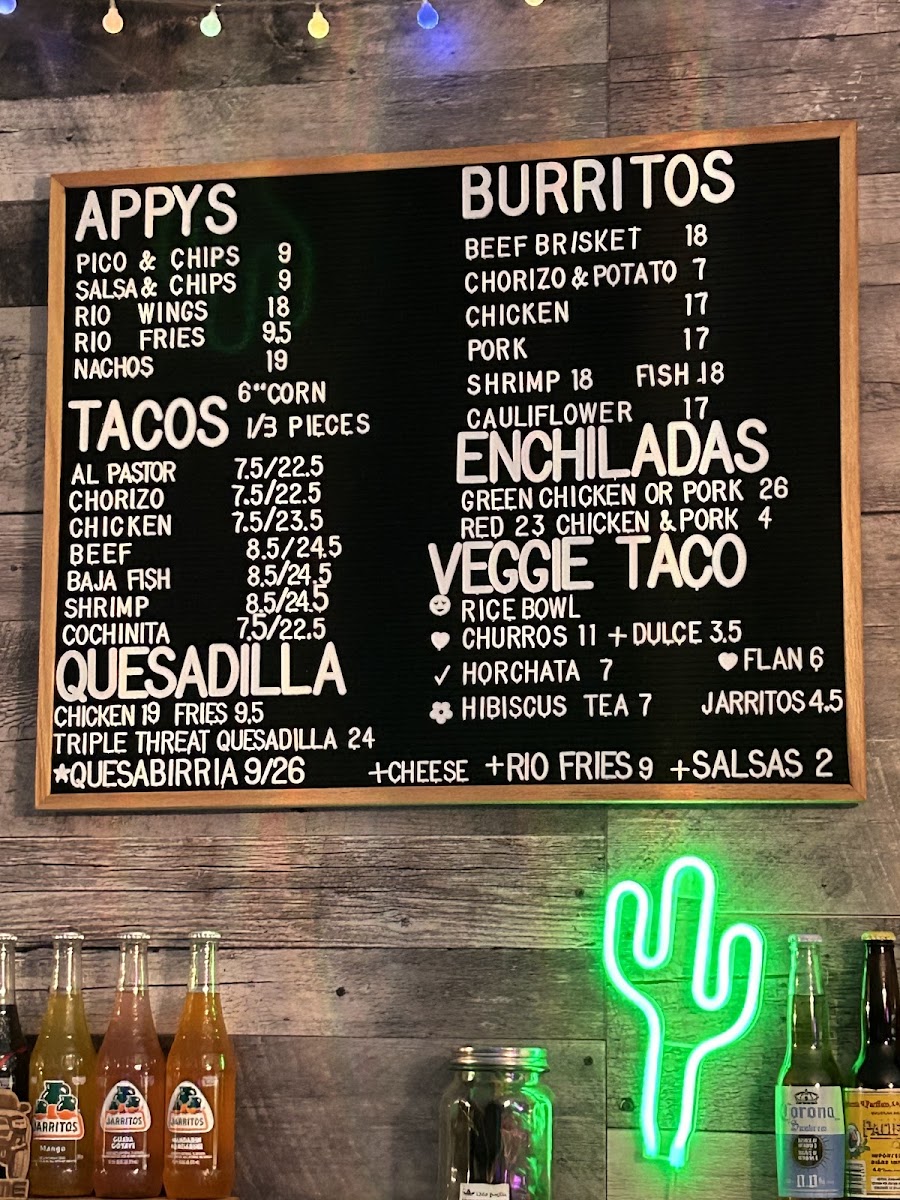 APPYS
PICO & CHIPS 9
SALSA & CHIPS 9
RIO WINGS 18
RIO FRIES 9.5
NACHOS 19
TACOS 6" CORN
1/3 PIECES
AL PASTOR 7.5/22.5
CHORIZO 7.5/22.5
CHICKEN 7.5/23.5
BEEF 8.5/24.5
BAJA FISH 8.5/24.5
SHRIMP 8.5/24.5
COCHINITA 7.5/22.5
QUESADILLA
CHICKEN 19 FRIES 9.5
TRIPLE THREAT QUESADILLA 24
★QUESABIRRIA 9/26
BURRITOS
BEEF BRISKET 18
CHORIZO & POTATO 7
CHICKEN 17
PORK 17
SHRIMP 18 FISH 18
CAULIFLOWER 17
ENCHILADAS
GREEN CHICKEN OR PORK 26
RED 23 CHICKEN & PORK 4
VEGGIE TACO
RICE BOWL
CHURROS 11 + DULCE 3.5
✓ HORCHATA 7 FLAN 6
HIBISCUS TEA 7 JARRITOS 4.5
+CHEESE +RIO FRIES 9 +SALSAS 2
JARRITOS
Mango
JARRITOS
GUAVA
JARRITOS
MANDARIN
Corona
0.0%